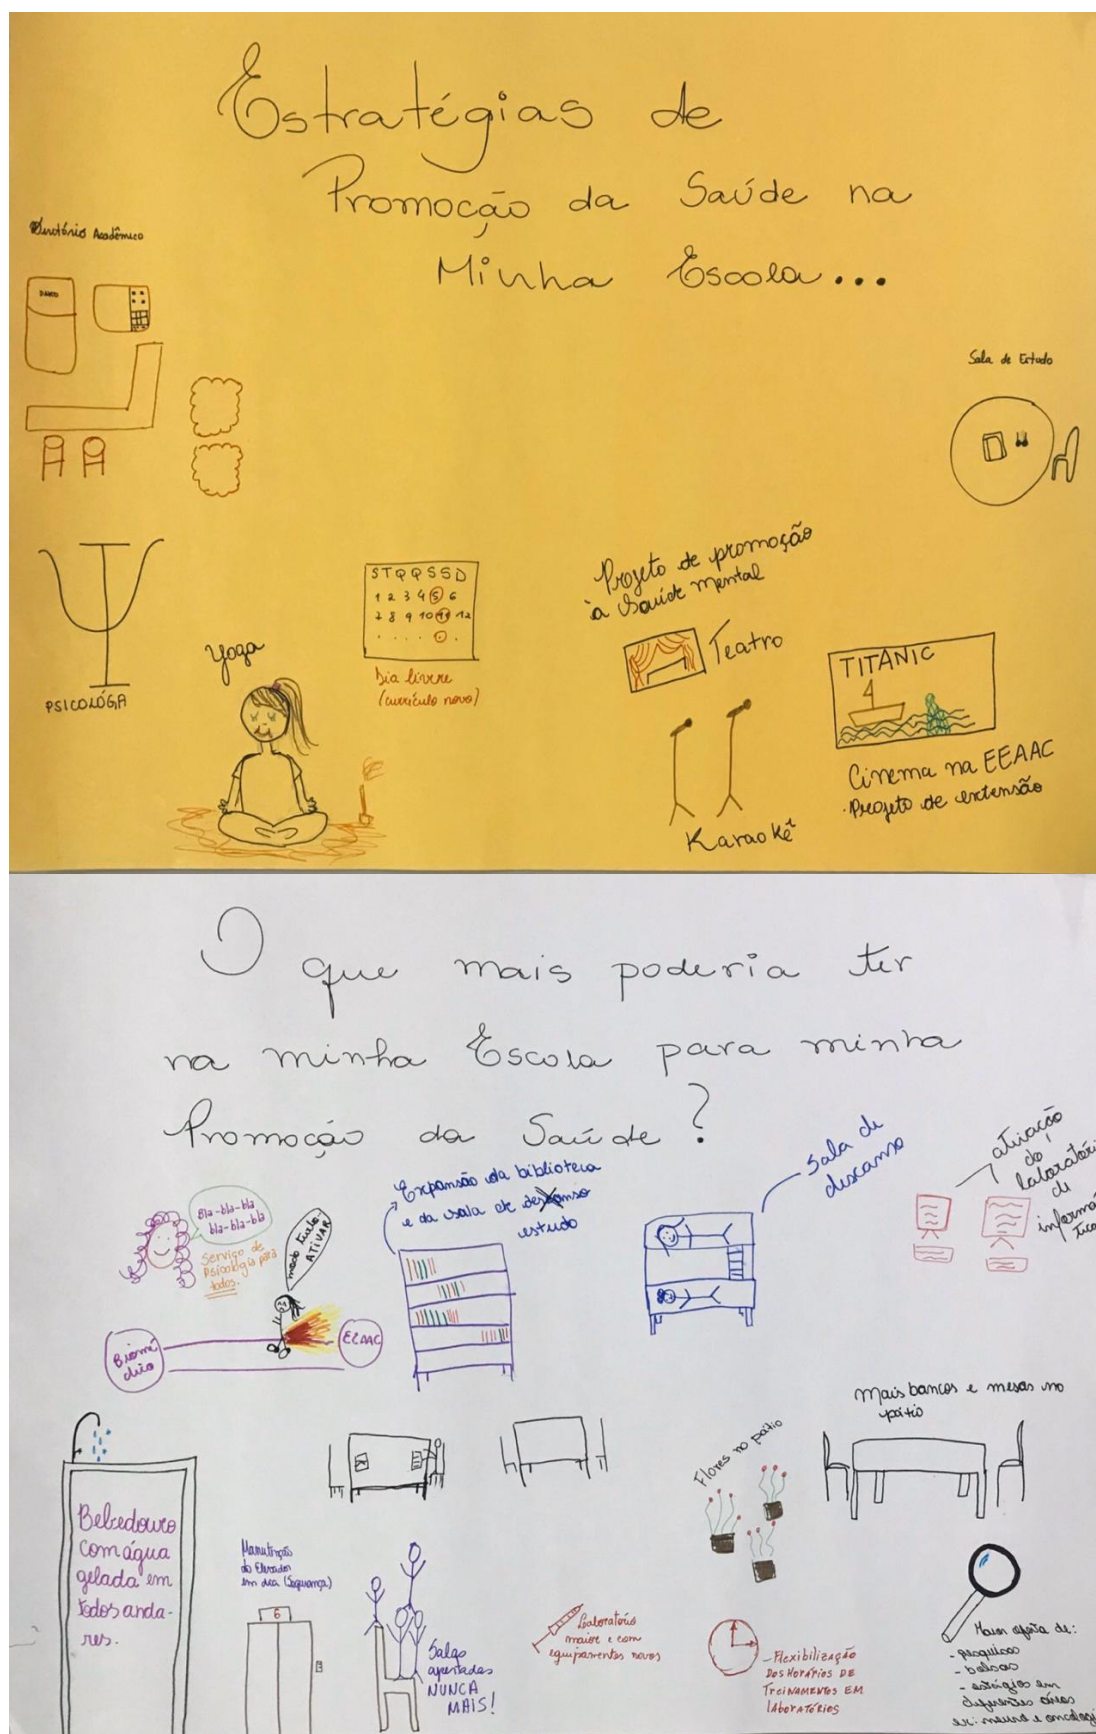 Estratégias de
Promoção da Saúde na
Minha Escola...
Diretório Acadêmico
Sala de Estudo
PSICOLÓGA
Yoga
S T Q Q S S D
1 2 3 4 5 6
7 8 9 10 11 12
. . . . . .
Dia livre
(currículo novo)
Projeto de promoção
à Saúde mental
Teatro
Karaokê
TITANIC
Cinema na EEAAC
· Projeto de extensão
O que mais poderia ter
na minha Escola para minha
Promoção da Saúde?
Bla-bla-bla
bla-bla-bla
Serviço de
Psicologia para
todos.
modo turbo
ATIVAR
Biomé
dico
EEAAC
Expansão da biblioteca
e da sala de descanso
estudo
Sala de
descanso
ativação
do
laboratório
de
informá
tica
Mais bancos e mesas no
pátio
Flores no pátio
Bebedouro
com água
gelada em
todos anda-
res.
Manutenção
do Elevador
em dia (Segurança)
6
Salas
apertadas
NUNCA
MAIS!
Laboratório
maior e com
equipamentos novos
- Flexibilização
dos Horários de
Treinamentos em
laboratórios
Maior oferta de:
- pesquisas
- bolsas
- estágios em
diferentes áreas
ex: neuro e oncologi